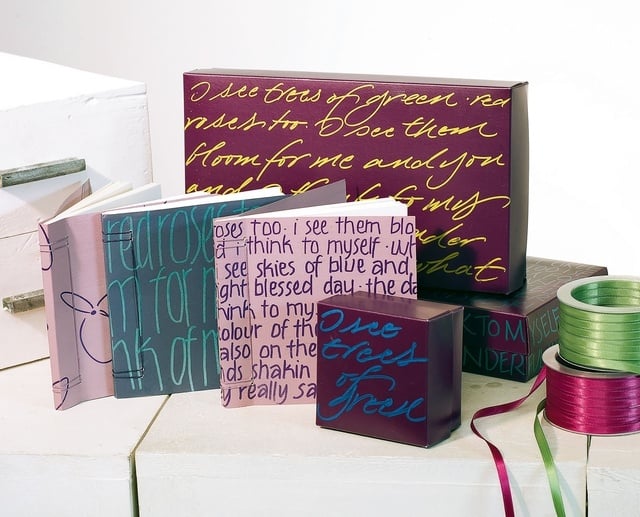 I see trees of green red
roses too. I see them
bloom for me and you
and
to my
what
red roses
m for m
nk of m
oses too. i see them blo
d i think to myself. wh
see skies of blue and
ght blessed day. the da
ink to my
olour of th
also on the
nds shakin
y really sa
I see
trees
of
green
K TO MYSELF
NDER